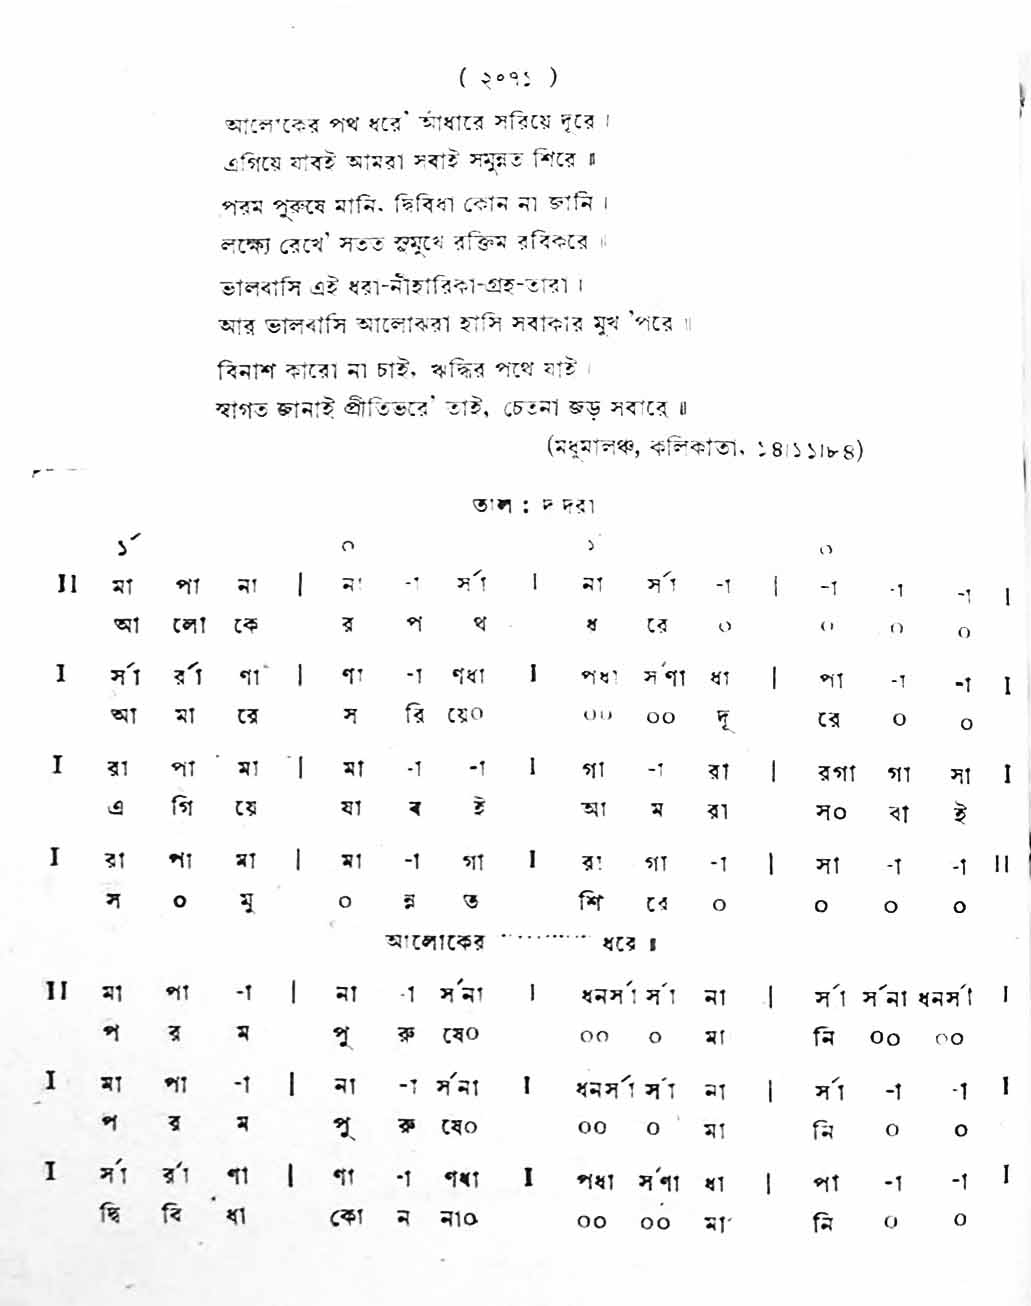 ( ২০৭১ )
আলোকের পথ ধরে' আঁধারে সরিয়ে দূরে ।
এগিয়ে যাবই আমরা সবাই সমুন্নত শিরে ॥
পরম পুরুষে মানি, দ্বিবিধা কোন না জানি ।
লক্ষ্যে রেখে' সতত সুমুখে রক্তিম রবিকরে ॥
ভালবাসি এই ধরা-নীহারিকা-গ্রহ-তারা ।
আর ভালবাসি আলোঝরা হাসি সবাকার মুখ 'পরে ॥
বিনাশ কারো না চাই, ঋদ্ধির পথে যাই ।
স্বাগত জানাই প্রীতিভরে' তাই, চেতনা জড় সবারে ॥
(মধুমালঞ্চ, কলিকাতা, ১৪।১১।৮৪)
তাল : দাদরা
১´ ০ ১´ ০
II মা পা না | না -া র্সা I না র্সা -া | -া -া -া I
আ লো কে র প থ ধ রে ০ ০ ০ ০
I র্সা র্রা ণা | ণা -া ণধা I পধা র্সণা ধা | পা -া -া I
আ মা রে স রি য়ে০ ০০ ০০ দূ রে ০ ০
I রা পা মা | মা -া -া I গা -া রা | রগা গা সা I
এ গি য়ে যা ব ই আ ম রা স০ বা ই
I রা পা মা | মা -া গা I রা গা -া | সা -া -া II
স ০ মু ০ ন্ন ত শি রে ০ ০ ০ ০
আলোকের ··········· ধরে ॥
II মা পা -া | না -া র্সনা I ধনর্সা র্সা না | র্সা র্সনা ধনর্সা I
প র ম পু রু ষে০ ০০ ০ মা নি ০০ ০০
I মা পা -া | না -া র্সনা I ধনর্সা র্সা না | র্সা -া -া I
প র ম পু রু ষে০ ০০ ০ মা নি ০ ০
I র্সা র্রা ণা | ণা -া ণধা I পধা র্সণা ধা | পা -া -া I
দ্বি বি ধা কো ন না০ ০০ ০০ মা নি ০ ০